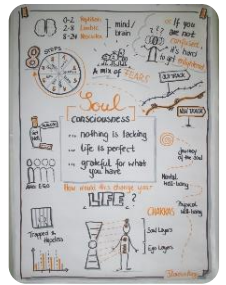 0-2
2-8
8-24
mind/
brain
If you
are not
confused,
it's hard
to get enlightened
8 STEPS
A mix of FEARS
OLD TRACK
NEW TRACK
Soul
consciousness
nothing is lacking
life is perfect
grateful for what
you have
journey
of the soul
How would this change your
LIFE?
Mental
well-being
Physical
well-being
CHAKRAS
Soul Layers
Ego Layers
Trapped &
Hopeless